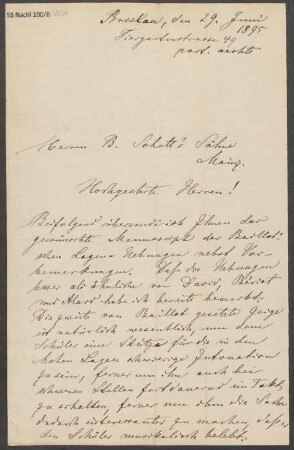 55 Nachl 100/B
Breslau, den 29. Juni
1895
Tiergartenstrasse 49
part. rechts
Herren B. Schott's Söhne
Mainz.
Hochgeehrte Herren!
Beifolgend übersende ich Ihnen das
gewünschte Manuscript der Baillot'
schen Lagen-Uebungen nebst Vor-
bemerkungen. Dass die Uebungen
besser als ähnliche von David, Bériot
und Alard habe ich bereits bemerkt.
Die zweite von Baillot gesetzte Geige
ist natürlich wesentlich, um dem
Schüler eine Stütze für die in den
hohen Lagen schwierige Intonation
zu sein, ferner um ihn auch bei
schweren Stellen fortdauernd im Takt
zu erhalten, ferner um ihm die Sache
dadurch interessanter zu machen, dass es
den Schüler musikalisch belebt.